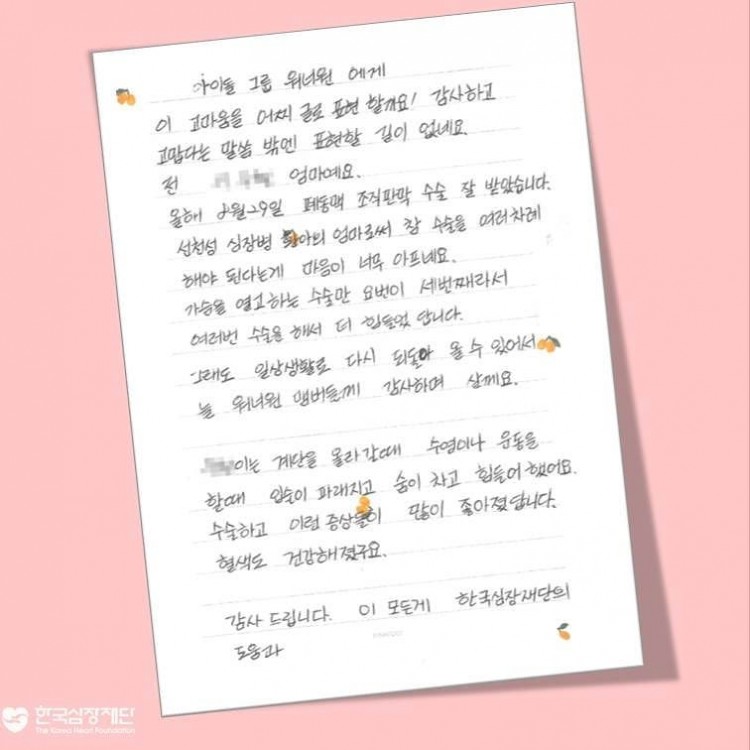 아이돌 그룹 워너원 에게
이 고마움을 어찌 글로 표현 할까요! 감사하고
고맙다는 말씀 밖엔 표현할 길이 없네요.
전 엄마예요.
올해 2월29일 폐동맥 조직판막 수술 잘 받았습니다.
선천성 심장병 환아의 엄마로써 참 수술을 여러차례
해야 된다는게 마음이 너무 아프네요.
가슴을 열고하는 수술만 요번이 세번째라서
여러번 수술을 해서 더 힘들었 답니다.
그래도 일상생활로 다시 되돌아 올 수 있어서
늘 워너원 멤버들께 감사하며 살께요.
이는 계단을 올라갈때 수영이나 운동을
할때 입술이 파래지고 숨이 차고 힘들어 했어요.
수술하고 이런 증상들이 많이 좋아졌답니다.
혈색도 건강해졌구요.
감사 드립니다. 이 모든게 한국심장재단의
도움과
한국심장재단
The Korea Heart Foundation